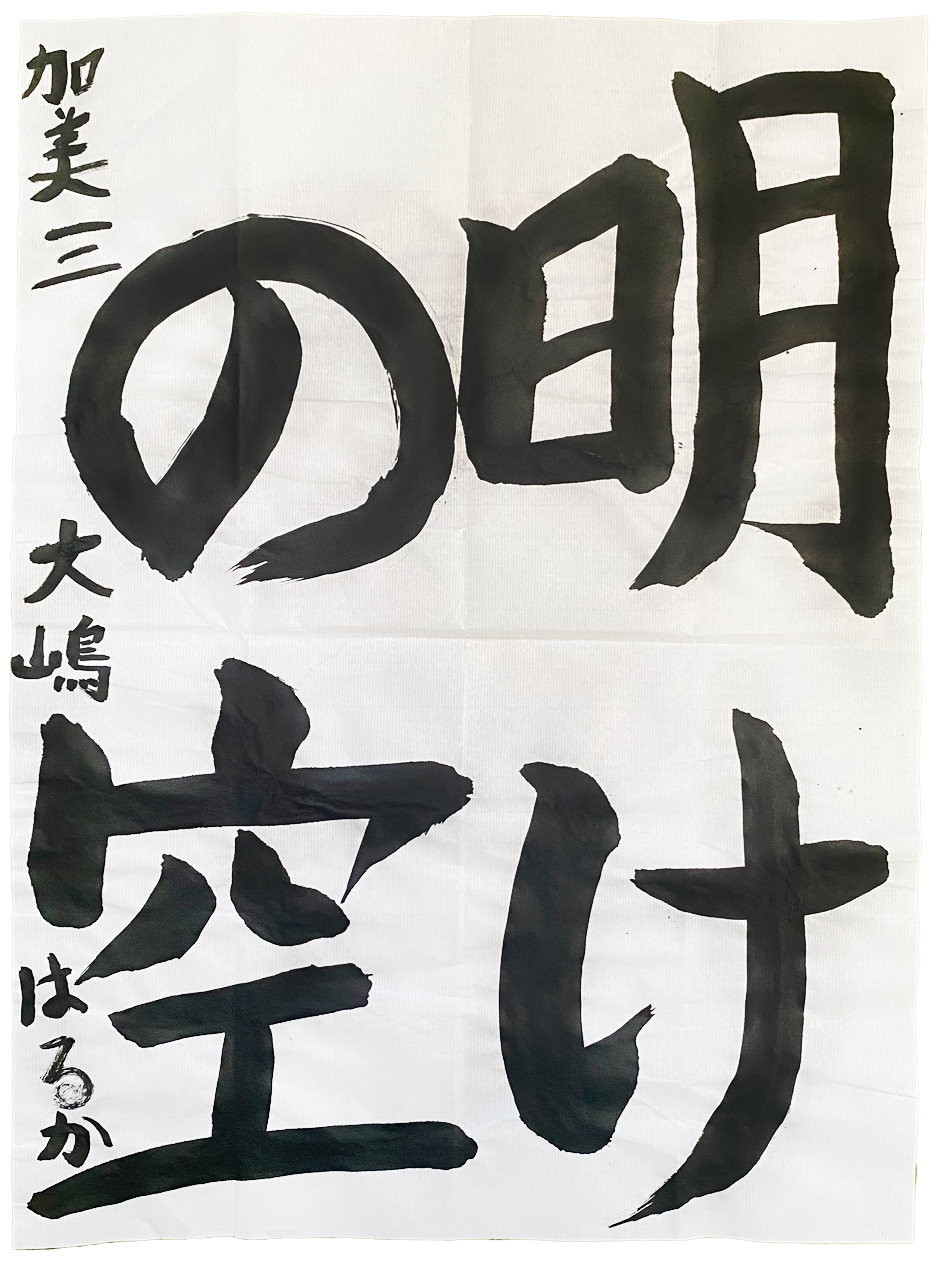 明け
の空
加美三 大嶋はるか